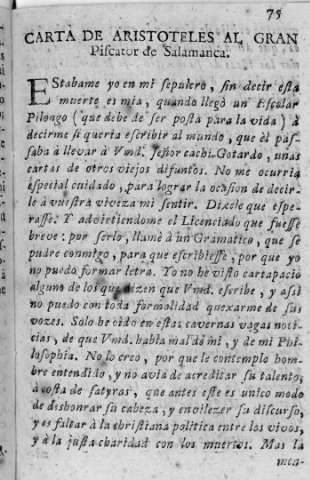 75
CARTA DE ARISTOTELES AL GRAN
Piscator de Salamanca.
EStabame yo en mi sepulcro, sin decir esta
muerte es mia, quando llegò un Escolar
Pilongo (que debe de ser posta para la vida) à
decirme si queria escribir al mundo, que èl pas-
saba à llevar à Vmd. señor cachi-Gotardo, unas
cartas de otros viejos difuntos. No me ocurria
especial cuidado, para lograr la ocasion de decir-
le à vuestra viveza mi sentir. Dixele que espe-
rasse. Y advirtiendome el Licenciado que fuesse
breve: por serlo, llamè à un Gramatico, que se
pudre conmigo, para que escribiesse, por que yo
no puedo formar letra. Yo no he visto cartapacio
alguno de los que dizen que Vmd. escribe, y assi
no puedo con toda formalidad quexarme de sus
vozes. Solo he oìdo en estas cavernas vagas noti-
cias, de que Vmd. habla mal de mi, y de mi Phi-
losophia. No lo creo, por que le contemplo hom-
bre entendido, y no avia de acreditar su talento,
à costa de satyras, que antes este es unico modo
de deshonrar su cabeza, y envilezer su discurso,
y es faltar à la christiana politica entre los vivos,
y à la justa charidad con los muertos. Mas la
men-